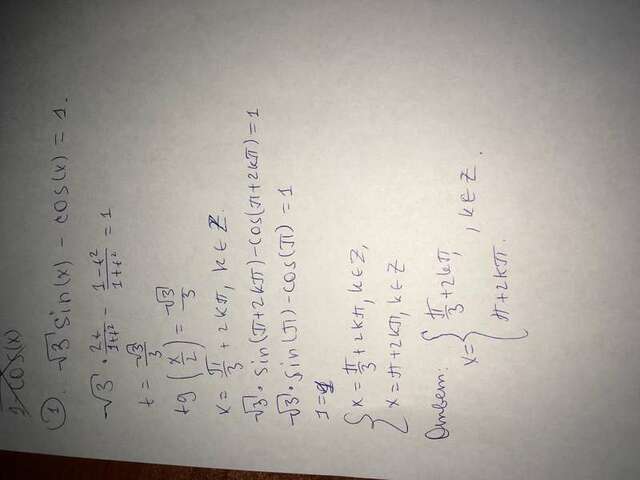 1-cos(x)
1. √3 sin(x) - cos(x) = 1.
√3 · 2t/(1+t²) - (1-t²)/(1+t²) = 1
t = √3/3
tg (x/2) = √3/3
x = π/3 + 2kπ, k ∈ Z.
√3 · sin(π+2kπ) - cos(π+2kπ) = 1
√3 · sin(π) - cos(π) = 1
1=1
{ x = π/3 + 2kπ, k ∈ Z,
x = π + 2kπ, k ∈ Z
Ответ: x = { π/3 + 2kπ,
π + 2kπ. , k ∈ Z.